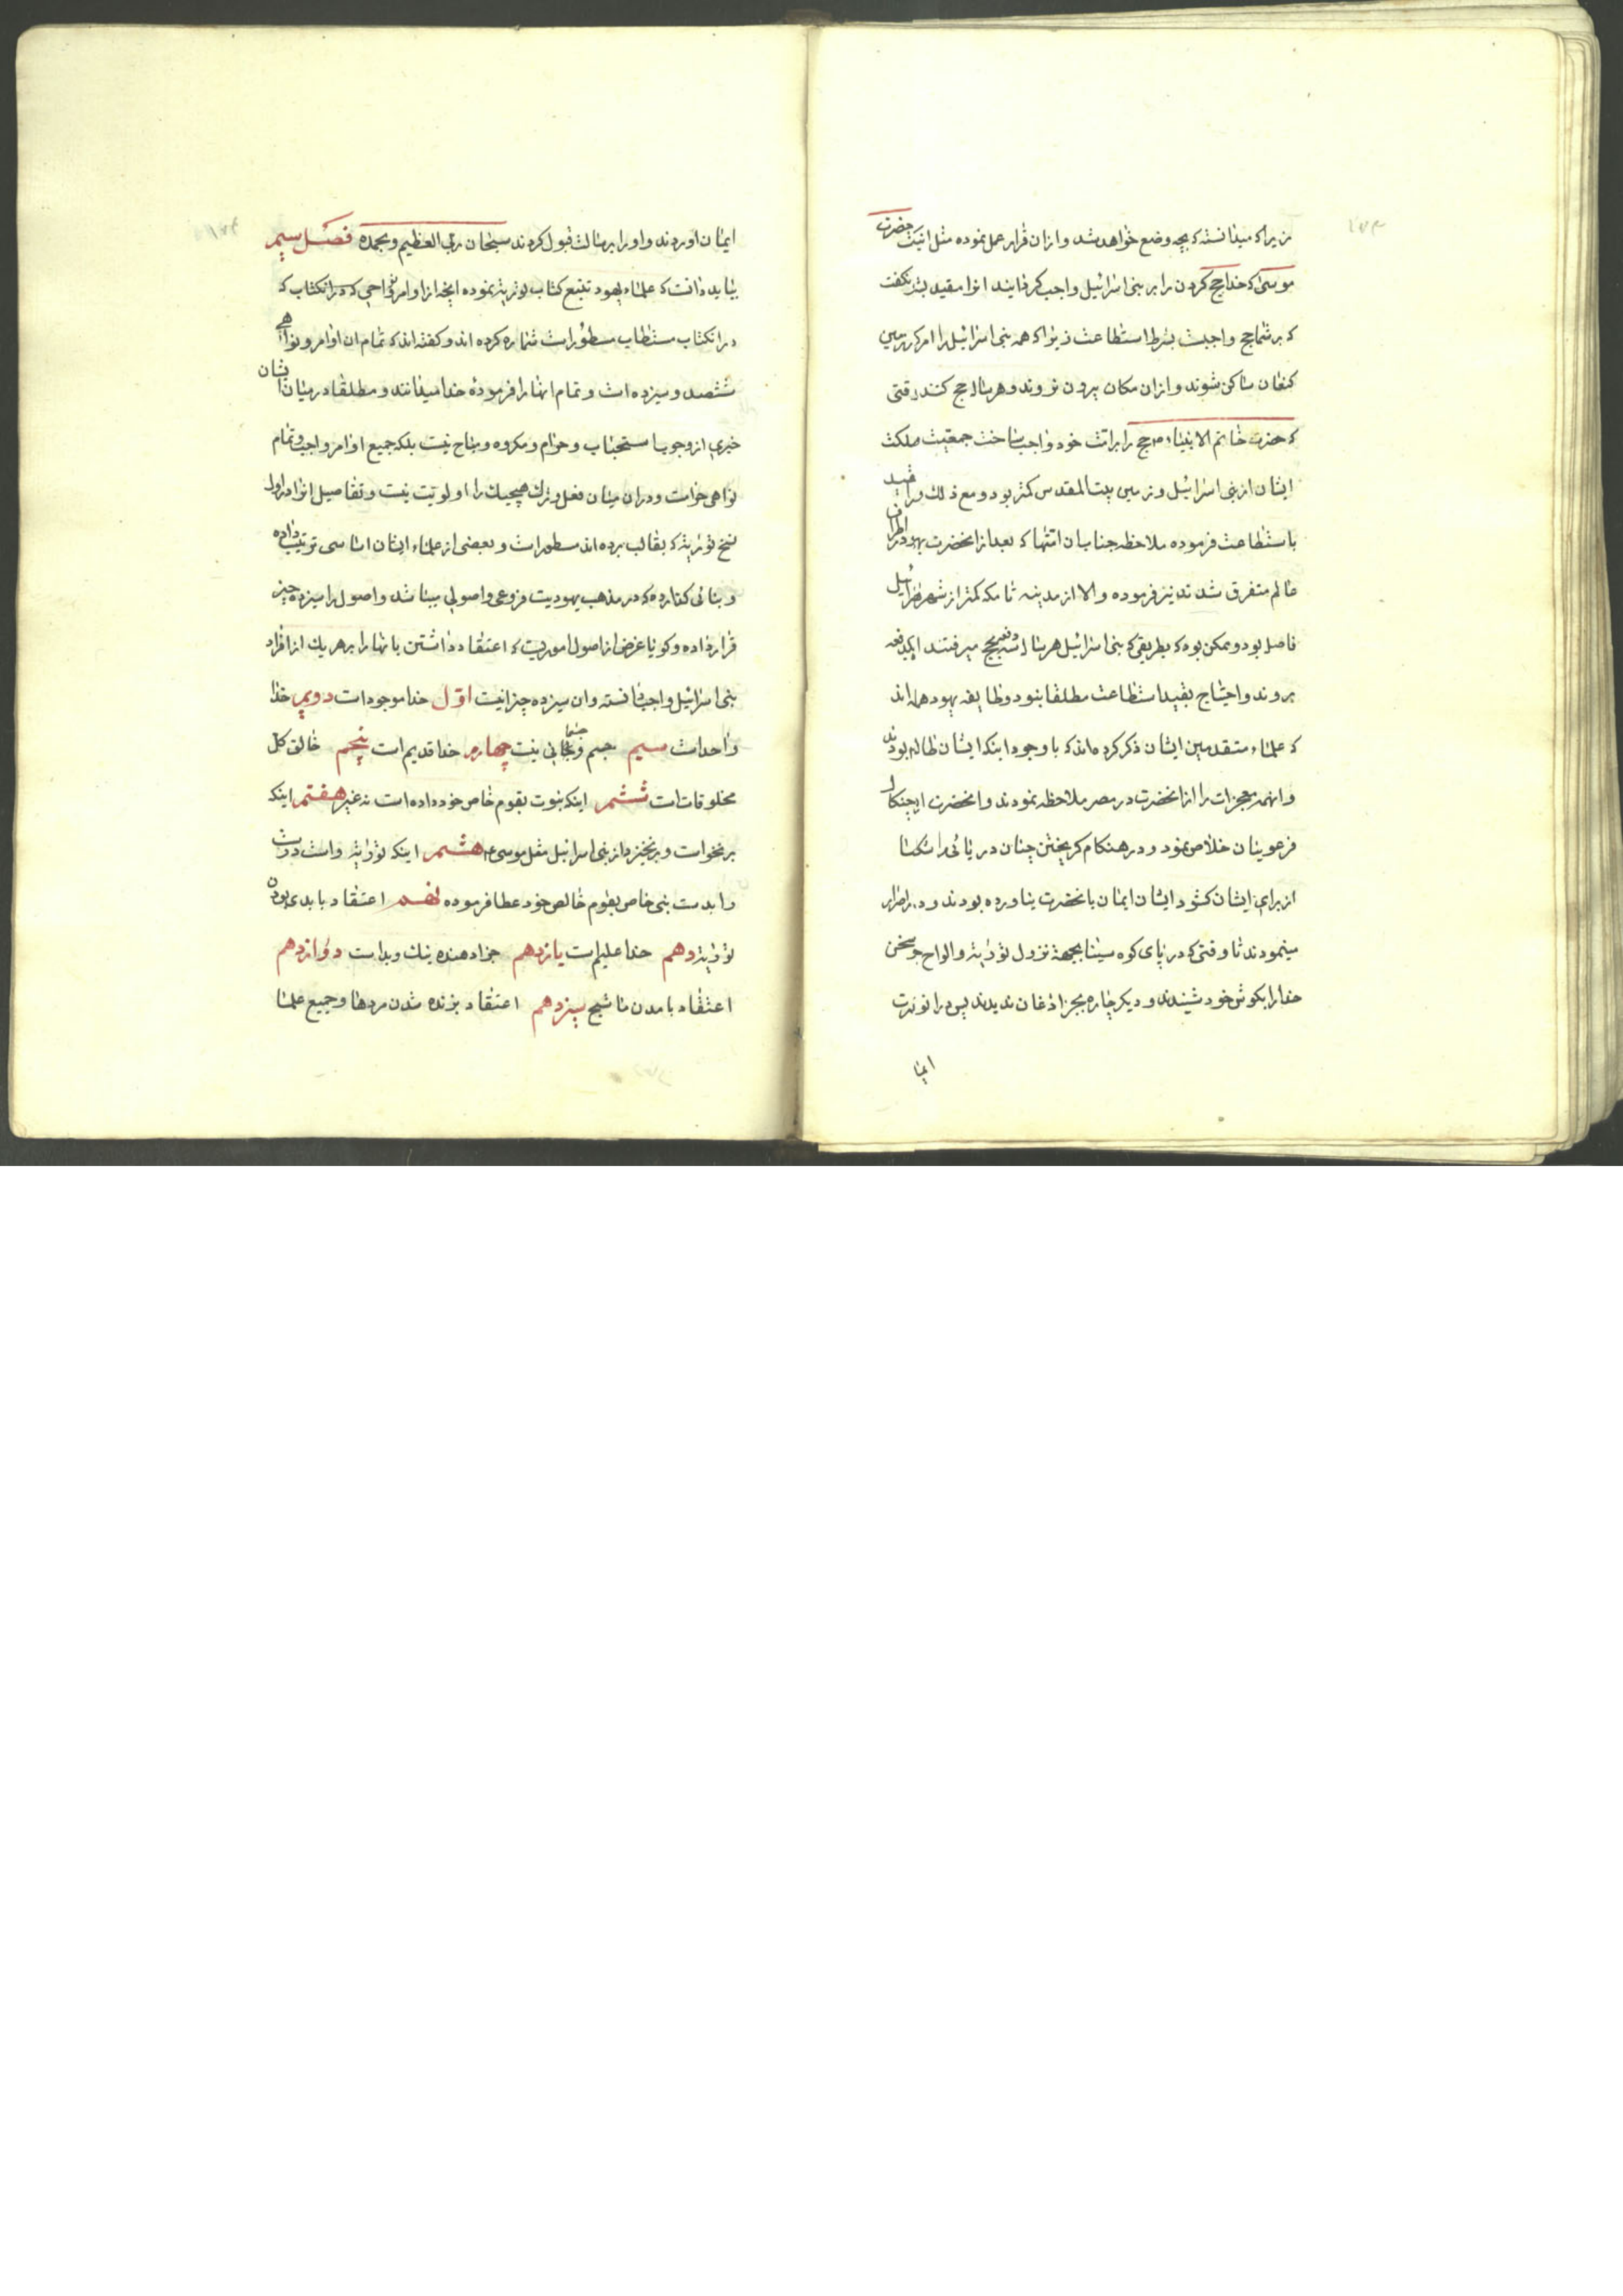 زیرا که میدانسته که بچه وضع خواهد شد و ازان قرار عمل نموده مثل اینکه حضرت
موسی که خدا حج کردن را بر بنی اسرائیل واجب گردانیند انرا مقید بشرط نکفت
که بر شما حج واجبست بشرط استطاعت زیرا که همه بنی اسرائیل را امر کرد در زمین
کنعان ساکن شوند و ازان مکان بیرون نروند و هر سال حج کنند وقتی
که حضرت خاتم الانبیاء حج را بر امت خود واجب ساخت جمعیت مملکت
ایشان از بنی اسرائیل و زمین بیت المقدس کمتر بود و مع ذلک مقید
باستطاعت فرموده ملاحظه جنابان امتها که بعد از انحضرت در اطراف
عالم متفرق شدند نیز فرموده و الا از مدینه تا مکه کمتر از شهر اسرائیل
فاصل بود و ممکن بود که بطریقی که بنی اسرائیل هر سال سه دفعه بحج میرفتند یکدفعه
بروند و احتیاج بقید استطاعت مطلقا نبود و طایفه یهود همه اند
که علماء متقدمین ایشان ذکر کرده اند که با وجود اینکه ایشان ظالم بودند
و انهمه معجزات را از انحضرت در مصر ملاحظه نمودند و انحضرت از چنکال
فرعونیان خلاص نمود و در هنکام کریختن چنان دریائی را شکست
از برای ایشان کشود ایشان ایمان بانحضرت نیاورده بودند و اصرار
مینمودند تا وقتی که در پای کوه سینا بجهة نزول توراية و الواح سخن
خدا را بکوش خود شنیدند و دیکر چاره بجز اذعان ندیدند پس در انوقت
ایما
ایمان اوردند و او را برسالت قبول کردند سبحان ربی العظیم و بحمده فصل سیم
بباید دانست که علماء یهود تتبع کتاب توریة نموده انچه از اوامر و نواحی که در انکتاب که
در انکتاب مستطاب مسطور است شماره کرده اند و کفته اند که تمام ان اوامر و نواهی
ششصد و سیزده است و تمام انها را فرموده خدا میدانند و مطلقا در میان ایشان
خبری از وجوب یا مستحباب و حرام و مکروه و مباح نیست بلکه جمیع اوامر واجب و تمام
نواهی حرامست و در ان میان فعل و ترک هیچیک را اولویت نیست و تفاصیل انها در اول
نسخ توریة که بقالب برده اند مسطور است و بعضی از علماء ایشان اساسی ترتیب داده
و بنائی کذارده که در مذهب یهودیت فروعی و اصولی میباشد و اصول را سیزده چیز
قرار داده و کویا غرض از اصول اموریست که اعتقاد داشتن بانها را بر هر یک از افراد
بنی اسرائیل واجب دانسته و ان سیزده چیز اینست اول خدا موجود است دویم خدا
واحد است سیم جسم و جسمانی نیست چهارم خدا قدیم است پنجم خالق کل
مخلوقات است ششم اینکه نبوت بقوم خاص خود داده است نه غیر هفتم اینکه
برنخواست و برنخیزد از بنی اسرائیل مثل موسی هشتم اینکه توراية راست و درست
را بدست نبی خاص بقوم خالص خود عطا فرموده نهم اعتقاد بابدی بودن
توراية دهم خدا علیم است یازدهم جزا دهنده نیک و بد است دوازدهم
اعتقاد بامدن ماشیح سیزدهم اعتقاد بزنده شدن مردها و جمیع علما